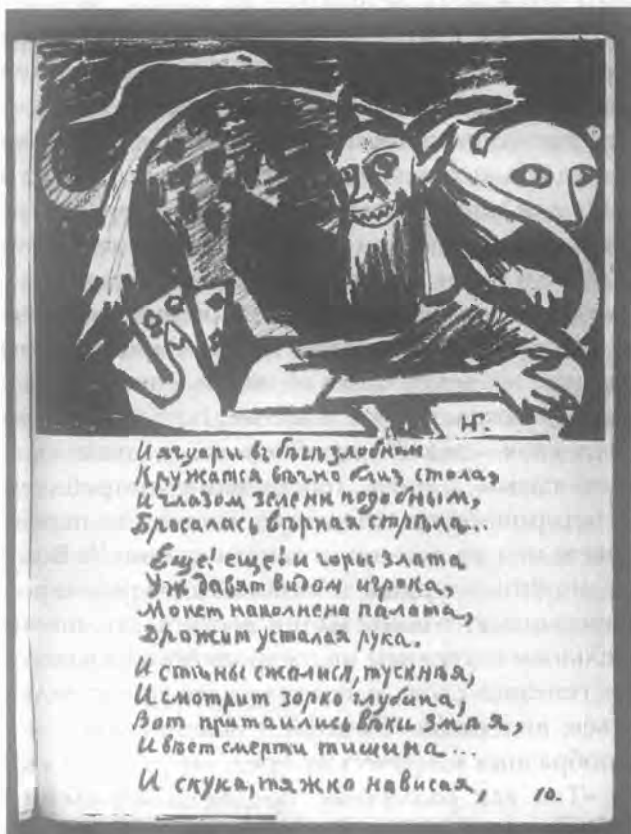 НГ.
И ягуари в бѣгѣ злобным
Кружатся вѣчно близ стола,
И глазом зелени подобным,
Бросалась вѣрная стрѣла...
Еще! еще! и горы злата
Уж давят видом игрока,
Монет наполнена палата,
Дрожит усталая рука..
И стѣны сжалися, тускнѣя,
И смотрит зорко глубина,
Вот притаились вѣки змѣя,
И вѣет смерти тишина...
И скука, тяжко нависая, 10.